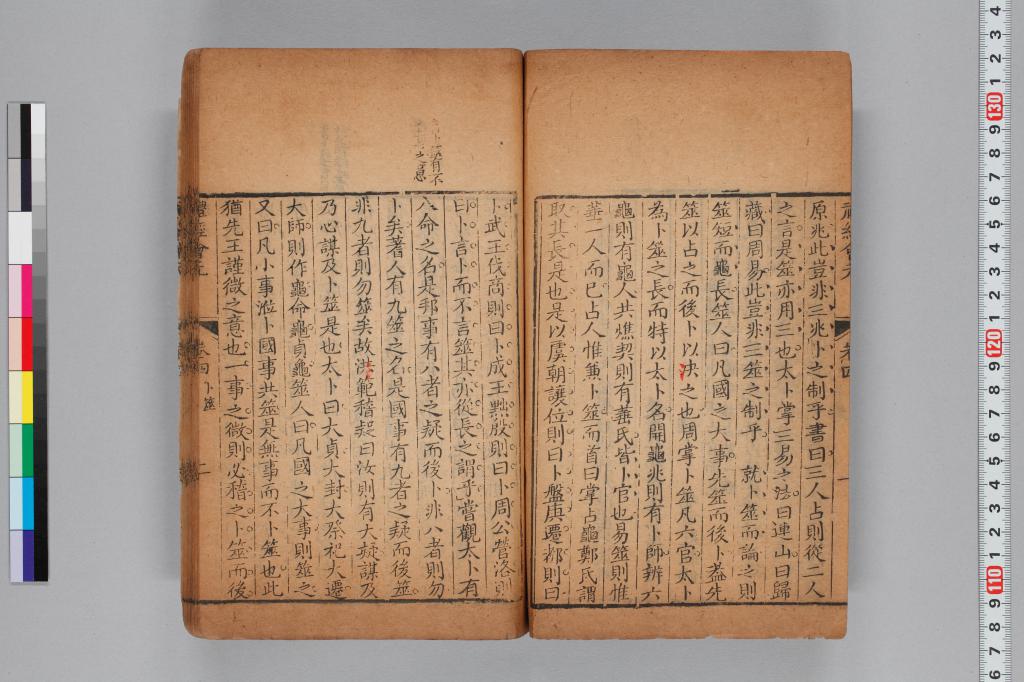 原兆此豈非三兆卜之制乎書曰三人占則從二人
之言是筮亦用三也太卜掌三易之法曰連山曰歸
藏曰周易此豈非三筮之制乎 就卜筮而論之則
筮短而龜長筮人曰凡國之大事先筮而後卜葢先
筮以占之而後卜以決之也周掌卜筮凡六官太卜
為卜筮之長而特以太卜名開龜兆則有卜師辨六
龜則有龜人共燋契則有菙氏皆卜官也易筮則惟
菙一人而已占人惟兼卜筮而首曰掌占龜鄭氏謂
取其長是也是以虞朝讓位則曰卜盤庚遷都則曰
卜武王伐商則曰卜成王黜殷則曰卜周公營洛則
曰卜言卜而不言筮其亦從長之謂乎嘗觀太卜有
八命之名是邦事有八者之疑而後卜非八者則勿
卜矣著人有九筮之名是國事有九者之疑而後筮
非九者則勿筮矣故洪範稽疑曰汝則有大疑謀及
乃心謀及卜筮是也太卜曰大貞大封大祭祀大遷
大師則作龜命龜貞龜筮人曰凡國之大事則筮之
又曰凡小事涖卜國事共筮是無事而不卜筮也此
猶先王謹微之意也一事之微則必稽之卜筮而後
卷四 卜筮 二